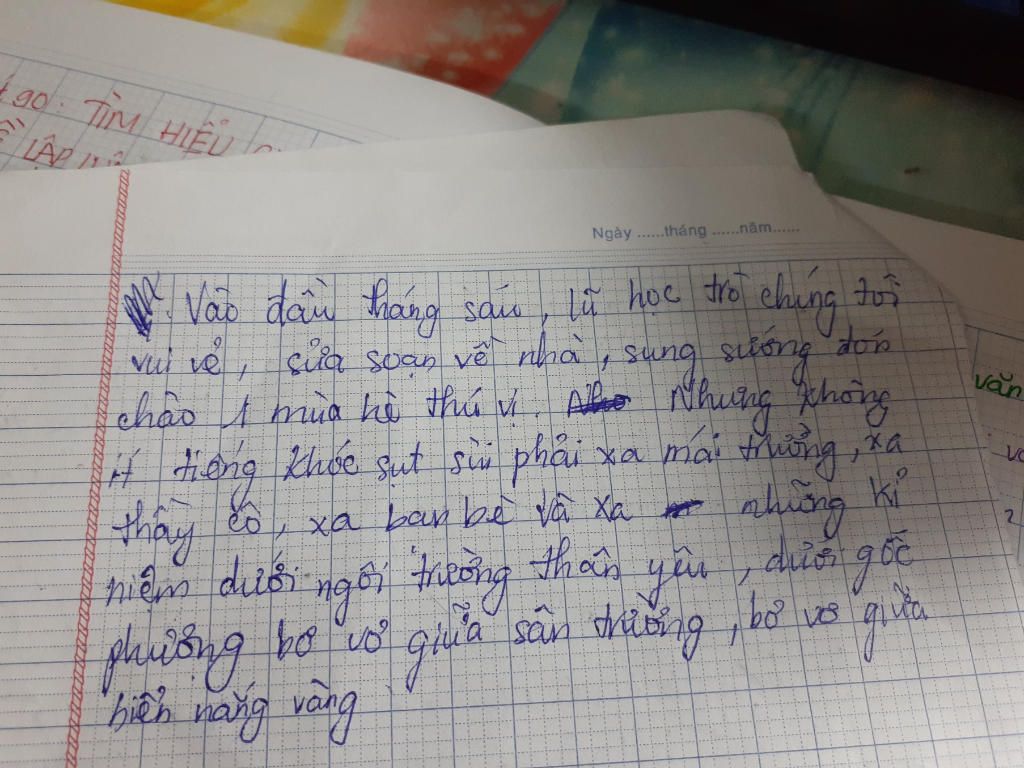 90. TÌM HIỂU
LẬP
Ngày ......tháng ......năm......
Vào đầu tháng sáu, lũ học trò chúng tôi
vui vẻ, sửa soạn về nhà, sung sướng đón
chào 1 mùa hè thú vị. Nhưng không
ít tiếng khóc sụt sùi phải xa mái trường, xa
thầy cô, xa bạn bè và xa những kỉ
niệm dưới ngôi trường thân yêu, dưới gốc
phượng bơ vơ giữa sân trường, bơ vơ giữa
biển nắng vàng
văn